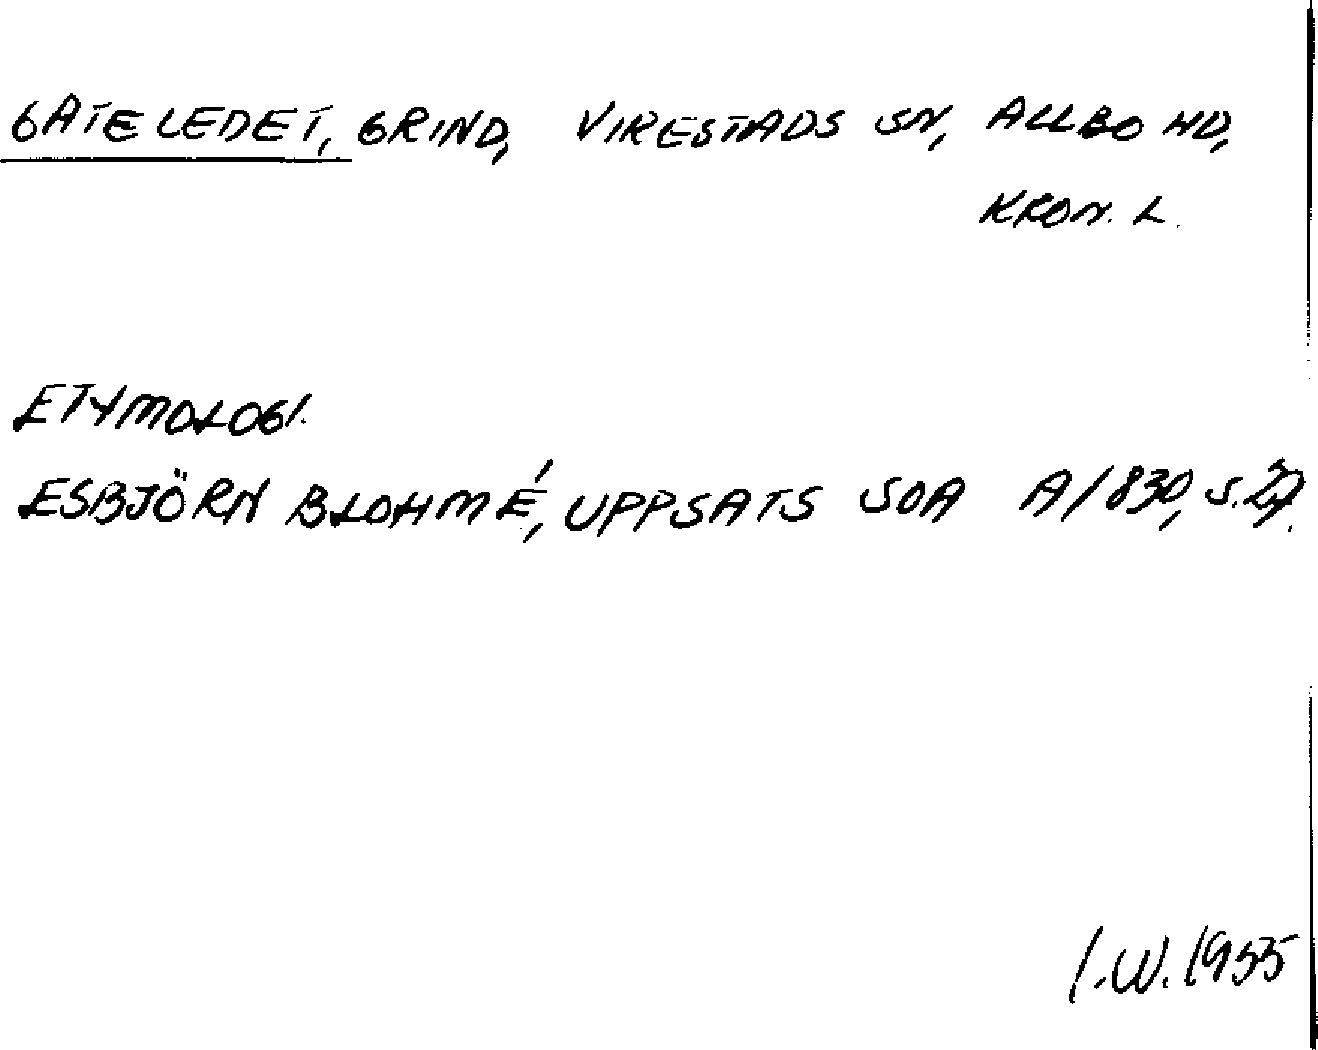 GATELEDET, GRIND, VIRESTADS SN, ALLBO HD,
KRON. L.
ETYMOLOGI.
ESBJÖRN BLOHMÉ, UPPSATS SOA A/830, S.
I.W. 1955